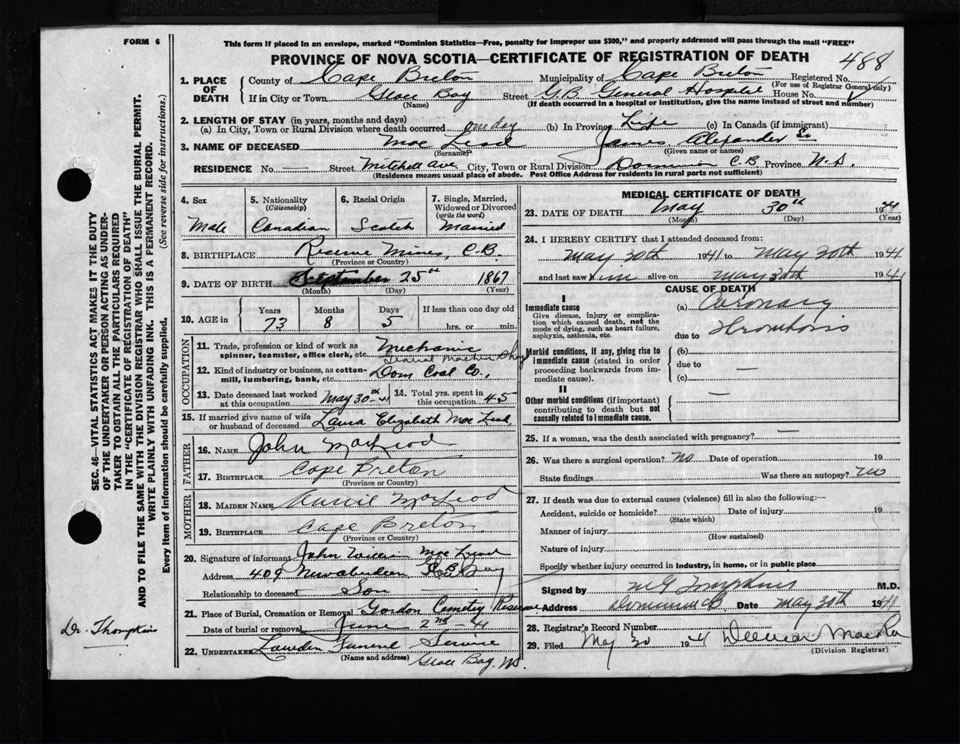 FORM 6
This form if placed in an envelope, marked "Dominion Statistics—Free, penalty for improper use $300," and properly addressed will pass through the mail "FREE"
PROVINCE OF NOVA SCOTIA—CERTIFICATE OF REGISTRATION OF DEATH
488
1. PLACE OF DEATH
County of Cape Breton Municipality of Cape Breton Registered No.
(For use of Registrar General only)
If in City or Town Glace Bay Street G.B. General Hospital House No.
(Name) (If death occurred in a hospital or institution, give the name instead of street and number)
2. LENGTH OF STAY (in years, months and days)
(a) In City, Town or Rural Division where death occurred one day (b) In Province Life (c) In Canada (if immigrant)
3. NAME OF DECEASED Mac Leod James Alexander
(Surname) (Given name or names)
RESIDENCE No. Street Mitchell Ave City, Town or Rural Division Dominion C.B Province N.S.
(Residence means usual place of abode. Post Office Address for residents in rural parts not sufficient)
4. Sex Male
5. Nationality (Citizenship) Canadian
6. Racial Origin Scotch
7. Single, Married, Widowed or Divorced (write the word) Married
8. BIRTHPLACE Reserve Mines, C.B.
(Province or Country)
9. DATE OF BIRTH September 25th 1867
(Month) (Day) (Year)
10. AGE in Years 73 Months 8 Days 5 If less than one day old hrs. or min.
OCCUPATION
11. Trade, profession or kind of work as spinner, teamster, office clerk, etc. Mechanic
12. Kind of industry or business, as cotton-mill, lumbering, bank, etc. Dom Coal Co.,
13. Date deceased last worked at this occupation May 30th - 41
14. Total yrs. spent in this occupation 45
15. If married give name of wife or husband of deceased Laura Elizabeth Mac Leod
FATHER
16. NAME John MacLeod
17. BIRTHPLACE Cape Breton
(Province or Country)
MOTHER
18. MAIDEN NAME Annie MacLeod
19. BIRTHPLACE Cape Breton
(Province or Country)
20. Signature of informant John Mac Leod
Address 409 Bay
Relationship to deceased Son
21. Place of Burial, Cremation or Removal Gordon Cemetry Reserve
Date of burial or removal June 2nd - 41
22. UNDERTAKER Funeral Service
(Name and address) Glace Bay. N.S.
MEDICAL CERTIFICATE OF DEATH
23. DATE OF DEATH May 30th 1941
(Month) (Day) (Year)
24. I HEREBY CERTIFY that I attended deceased from:
May 30th 1941 to May 30th 1941
and last saw him alive on May 30th 1941
CAUSE OF DEATH
I
Immediate cause
Give disease, injury or complication which caused death, not the mode of dying, such as heart failure, asphyxia, asthenia, etc.
(a) Coronary
due to Thrombosis
Morbid conditions, if any, giving rise to immediate cause (stated in order proceeding backwards from immediate cause).
(b)
due to —
(c)
II
Other morbid conditions (if important) contributing to death but not causally related to immediate cause.
—
25. If a woman, was the death associated with pregnancy? —
26. Was there a surgical operation? No Date of operation 19
State findings Was there an autopsy? No
27. If death was due to external causes (violence) fill in also the following:—
Accident, suicide or homicide? Date of injury 19
(State which)
Manner of injury
(How sustained)
Nature of injury
Specify whether injury occurred in industry, in home, or in public place
Signed by M.D.
Address Dominion C.B Date May 30th 1941
28. Registrar's Record Number
29. Filed May 30 1941
(Division Registrar)
SEC. 46—VITAL STATISTICS ACT MAKES IT THE DUTY OF THE UNDERTAKER OR PERSON ACTING AS UNDERTAKER TO OBTAIN ALL THE PARTICULARS REQUIRED IN THE "CERTIFICATE OF REGISTRATION OF DEATH" AND TO FILE THE SAME WITH THE DIVISION REGISTRAR WHO SHALL ISSUE THE BURIAL PERMIT.
WRITE PLAINLY WITH UNFADING INK. THIS IS A PERMANENT RECORD.
Every item of information should be carefully supplied. (See reverse side for instructions.)
Dr. Thompkins